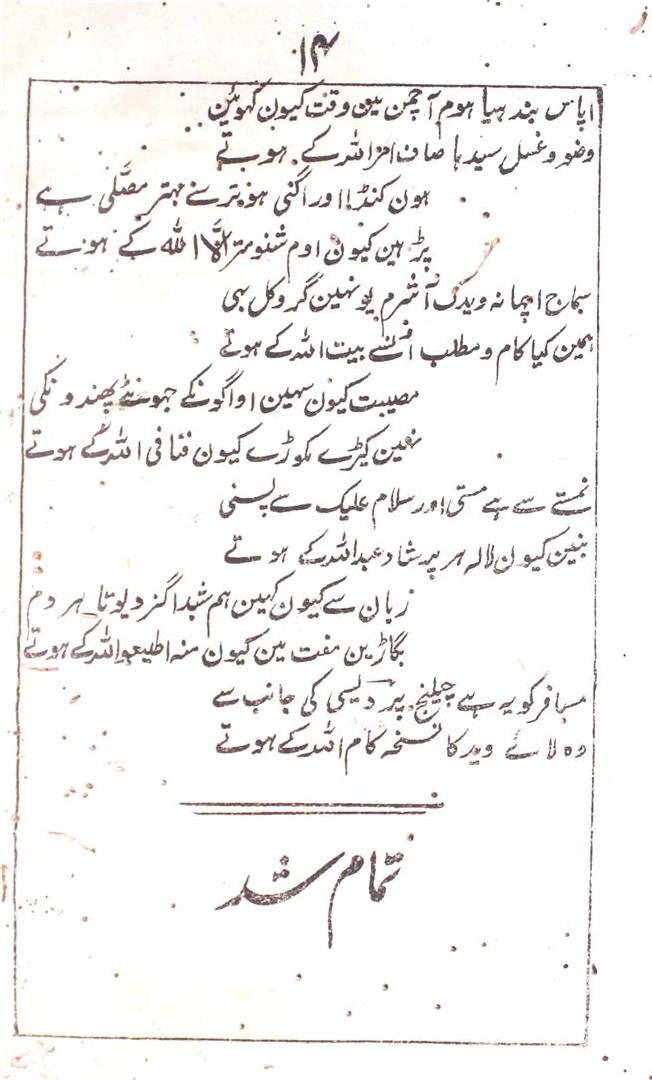 ۱۴
اپاس بندہیا ہوم آچمن مین وقت کیون کہوئین
وضو وغسل سیدہا صاف امر اللہ کے ہوتے
ہون کنڈا اور اگنی ہوتر سے بہتر مصلی ہے
پڑہین کیون اوم شنومتر الا اللہ کے ہوتے
سماج اچہا نہ ویدک آشرم یونہین گروکل بہی
ہمین کیا کام ومطلب انسے بیت اللہ کے ہوتے
مصیبت کیون سہین اواگونکے جہونٹے پھندونکی
نہین کیڑے مکوڑے کیون فنا فی اللہ کے ہوتے
نمستے سے ہے مستی اور سلام علیک سے پستی
بنین کیون لالہ ہر پرشاد عبداللہ کے ہوتے
زبان سے کیون کہین ہم شبد اگنر دیوتا ہر دم
بگاڑین مفت مین کیون منہ اطیعو اللہ کے ہوتے
مسافر کو یہ ہے چیلنج پردیسی کی جانب سے
وہ لائے وید کا نسخہ کلام اللہ کے ہوتے
تمام شد